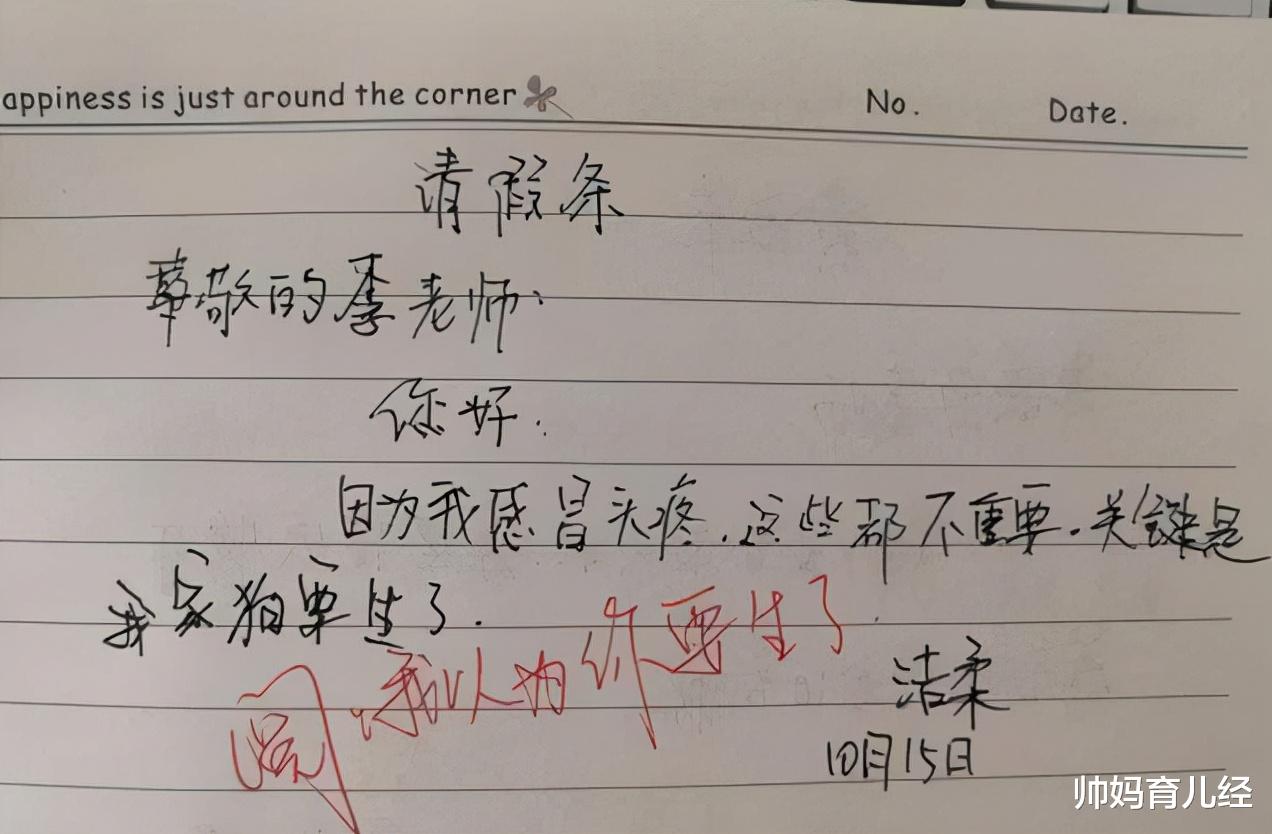 appiness is just around the corner
No.
Date.
请假条
尊敬的李老师:
你好.
因为我感冒头疼.这些都不重要.关键是
我家狗要生了.
我以为你要生了.
洁柔
10月15日
帅妈育儿经